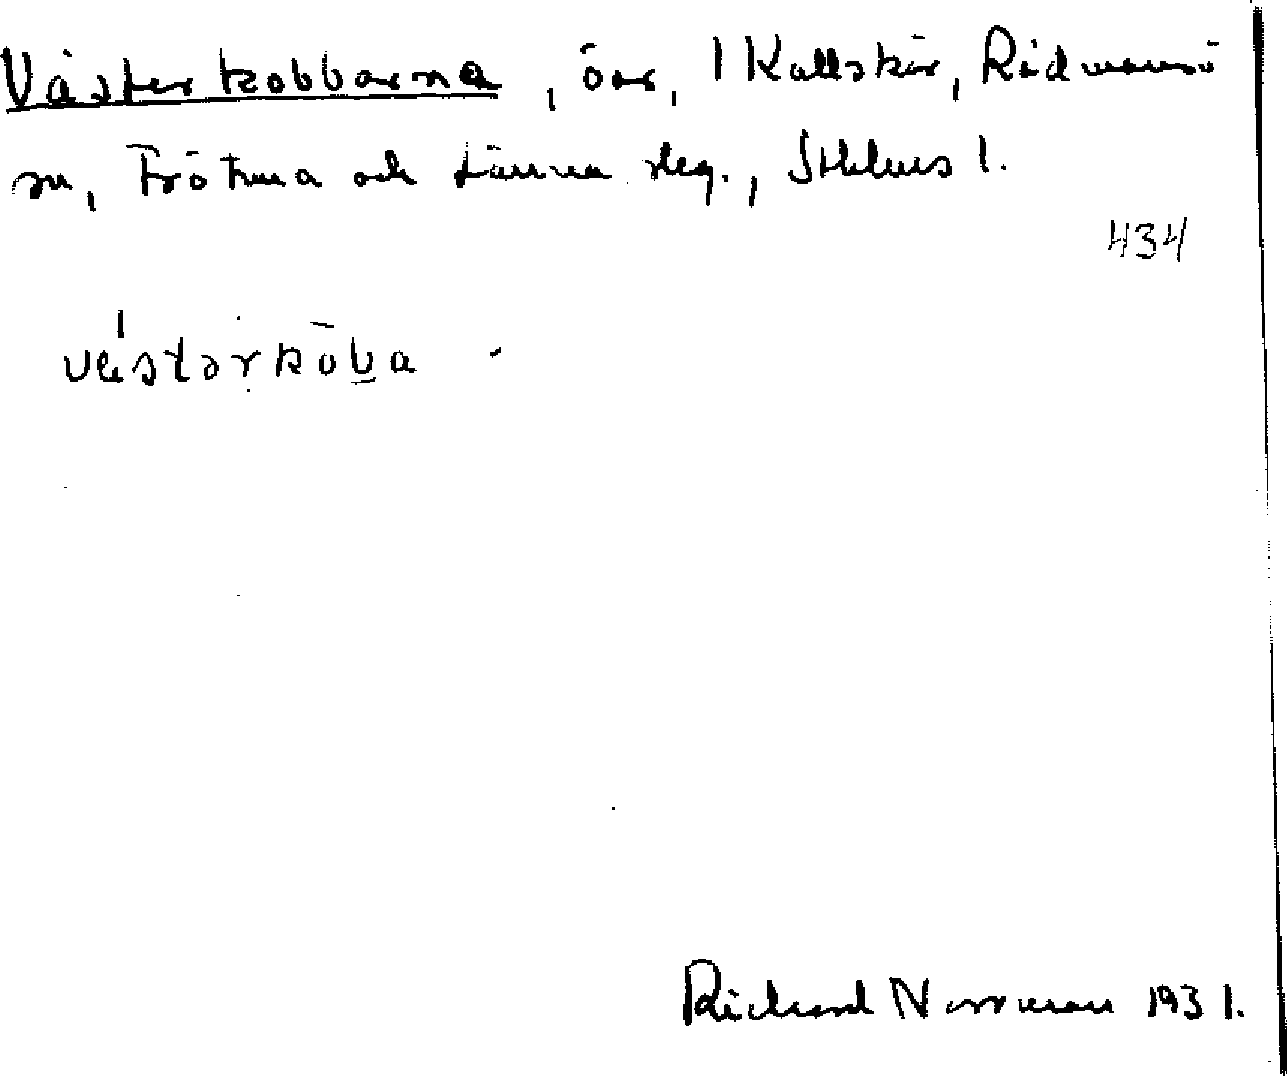 Västerkobbarna, öar, 1 Kallskär, Rådmansö
sn, Frötuna och Länna skg., Sthlms l.
434
västərkob̲a
Richard Norrman 1931.